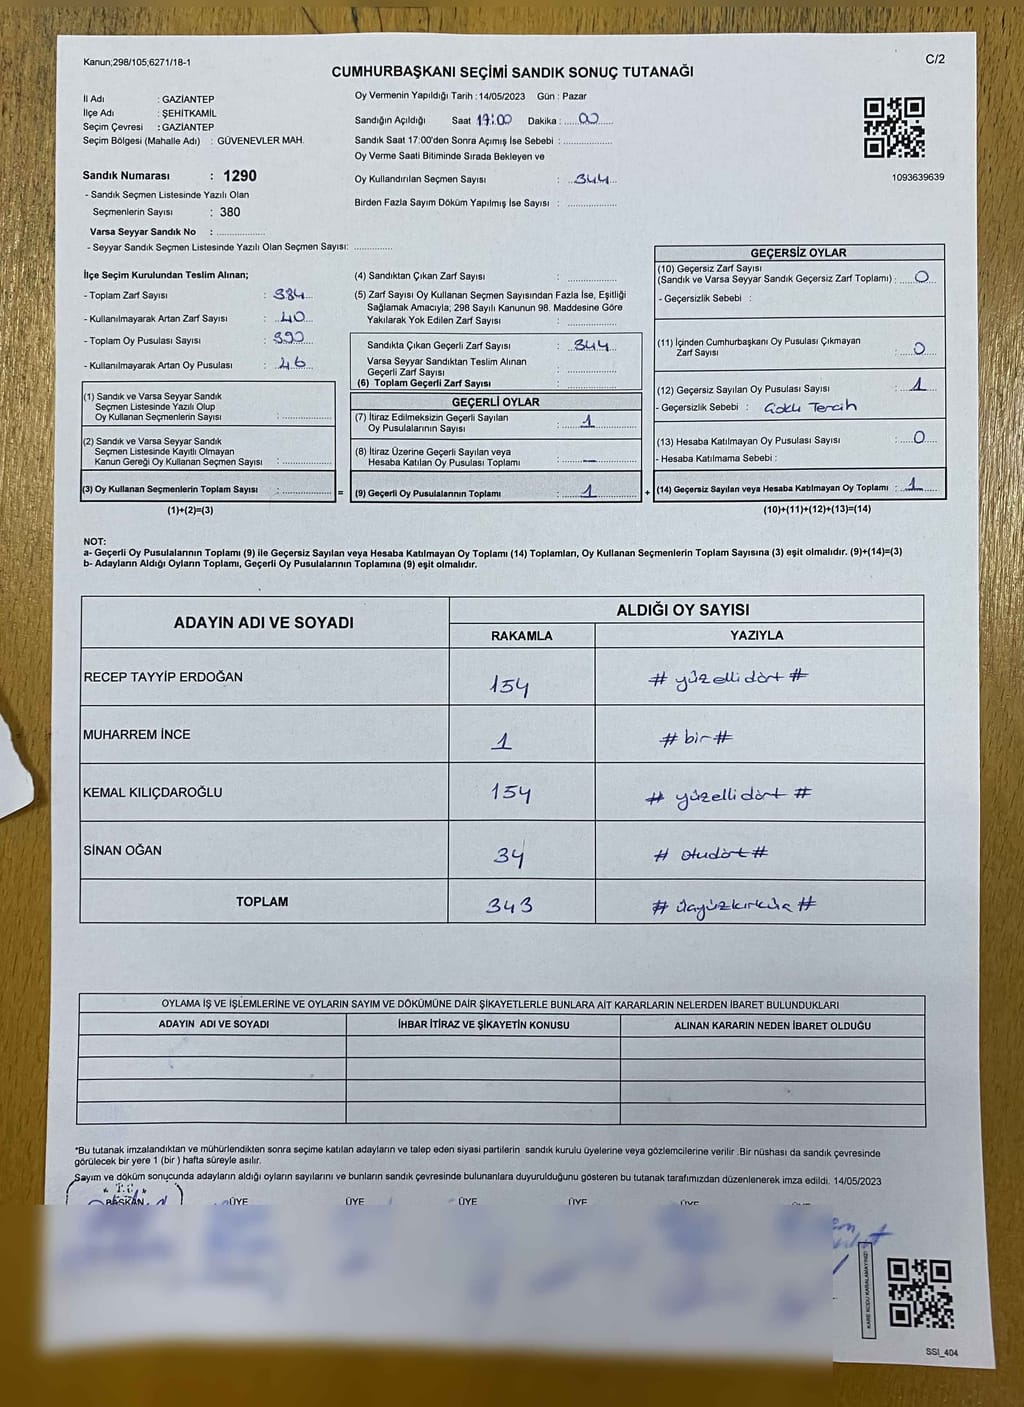 Kanun;298/105,6271/18-1
C/2
CUMHURBAŞKANI SEÇİMİ SANDIK SONUÇ TUTANAĞI
İl Adı : GAZİANTEP
İlçe Adı : ŞEHİTKAMİL
Seçim Çevresi : GAZİANTEP
Seçim Bölgesi (Mahalle Adı) : GÜVENEVLER MAH.
Sandık Numarası : 1290
- Sandık Seçmen Listesinde Yazılı Olan
Seçmenlerin Sayısı : 380
Varsa Seyyar Sandık No : ..................
- Seyyar Sandık Seçmen Listesinde Yazılı Olan Seçmen Sayısı: ..............
Oy Vermenin Yapıldığı Tarih : 14/05/2023 Gün : Pazar
Sandığın Açıldığı Saat 17:00 Dakika : 00
Sandık Saat 17:00'den Sonra Açımış İse Sebebi : ..................
Oy Verme Saati Bitiminde Sırada Bekleyen ve
Oy Kullandırılan Seçmen Sayısı : 344
Birden Fazla Sayım Döküm Yapılmış İse Sayısı : ..................
1093639639
İlçe Seçim Kurulundan Teslim Alınan;
- Toplam Zarf Sayısı : 384
- Kullanılmayarak Artan Zarf Sayısı : 40
- Toplam Oy Pusulası Sayısı : 390
- Kullanılmayarak Artan Oy Pusulası : 46
(1) Sandık ve Varsa Seyyar Sandık
Seçmen Listesinde Yazılı Olup
Oy Kullanan Seçmenlerin Sayısı : ..............
(2) Sandık ve Varsa Seyyar Sandık
Seçmen Listesinde Kayıtlı Olmayan
Kanun Gereği Oy Kullanan Seçmen Sayısı : ..............
(3) Oy Kullanan Seçmenlerin Toplam Sayısı : ..............
(1)+(2)=(3)
(4) Sandıktan Çıkan Zarf Sayısı : ..............
(5) Zarf Sayısı Oy Kullanan Seçmen Sayısından Fazla İse, Eşitliği
Sağlamak Amacıyla; 298 Sayılı Kanunun 98. Maddesine Göre
Yakılarak Yok Edilen Zarf Sayısı : ..............
Sandıkta Çıkan Geçerli Zarf Sayısı : 344
Varsa Seyyar Sandıktan Teslim Alınan
Geçerli Zarf Sayısı : ..............
(6) Toplam Geçerli Zarf Sayısı : ..............
GEÇERLİ OYLAR
(7) İtiraz Edilmeksizin Geçerli Sayılan
Oy Pusulalarının Sayısı : 1
(8) İtiraz Üzerine Geçerli Sayılan veya
Hesaba Katılan Oy Pusulası Toplamı : —
= (9) Geçerli Oy Pusulalarının Toplamı : 1
GEÇERSİZ OYLAR
(10) Geçersiz Zarf Sayısı
(Sandık ve Varsa Seyyar Sandık Geçersiz Zarf Toplamı) : 0
- Geçersizlik Sebebi :
(11) İçinden Cumhurbaşkanı Oy Pusulası Çıkmayan
Zarf Sayısı : 0
(12) Geçersiz Sayılan Oy Pusulası Sayısı : 1
- Geçersizlik Sebebi : Çoklu Tercih
(13) Hesaba Katılmayan Oy Pusulası Sayısı : 0
- Hesaba Katılmama Sebebi :
+ (14) Geçersiz Sayılan veya Hesaba Katılmayan Oy Toplamı : 1
(10)+(11)+(12)+(13)=(14)
NOT:
a- Geçerli Oy Pusulalarının Toplamı (9) ile Geçersiz Sayılan veya Hesaba Katılmayan Oy Toplamı (14) Toplamları, Oy Kullanan Seçmenlerin Toplam Sayısına (3) eşit olmalıdır. (9)+(14)=(3)
b- Adayların Aldığı Oyların Toplamı, Geçerli Oy Pusulalarının Toplamına (9) eşit olmalıdır.
ADAYIN ADI VE SOYADI ALDIĞI OY SAYISI
RAKAMLA YAZIYLA
RECEP TAYYİP ERDOĞAN 154 # yüzellidört #
MUHARREM İNCE 1 # bir #
KEMAL KILIÇDAROĞLU 154 # yüzellidört #
SİNAN OĞAN 34 # otudört #
TOPLAM 343 # üçyüzkırküç #
OYLAMA İŞ VE İŞLEMLERİNE VE OYLARIN SAYIM VE DÖKÜMÜNE DAİR ŞİKAYETLERLE BUNLARA AİT KARARLARIN NELERDEN İBARET BULUNDUKLARI
ADAYIN ADI VE SOYADI İHBAR İTİRAZ VE ŞİKAYETİN KONUSU ALINAN KARARIN NEDEN İBARET OLDUĞU
*Bu tutanak imzalandıktan ve mühürlendikten sonra seçime katılan adayların ve talep eden siyasi partilerin sandık kurulu üyelerine veya gözlemcilerine verilir .Bir nüshası da sandık çevresinde
görülecek bir yere 1 (bir ) hafta süreyle asılır.
Sayım ve döküm sonucunda adayların aldığı oyların sayılarını ve bunların sandık çevresinde bulunanlara duyurulduğunu gösteren bu tutanak tarafımızdan düzenlenerek imza edildi. 14/05/2023
BAŞKAN ÜYE ÜYE ÜYE ÜYE ÜYE
KARE KODU KARALAMAYINIZ!
SSI_404